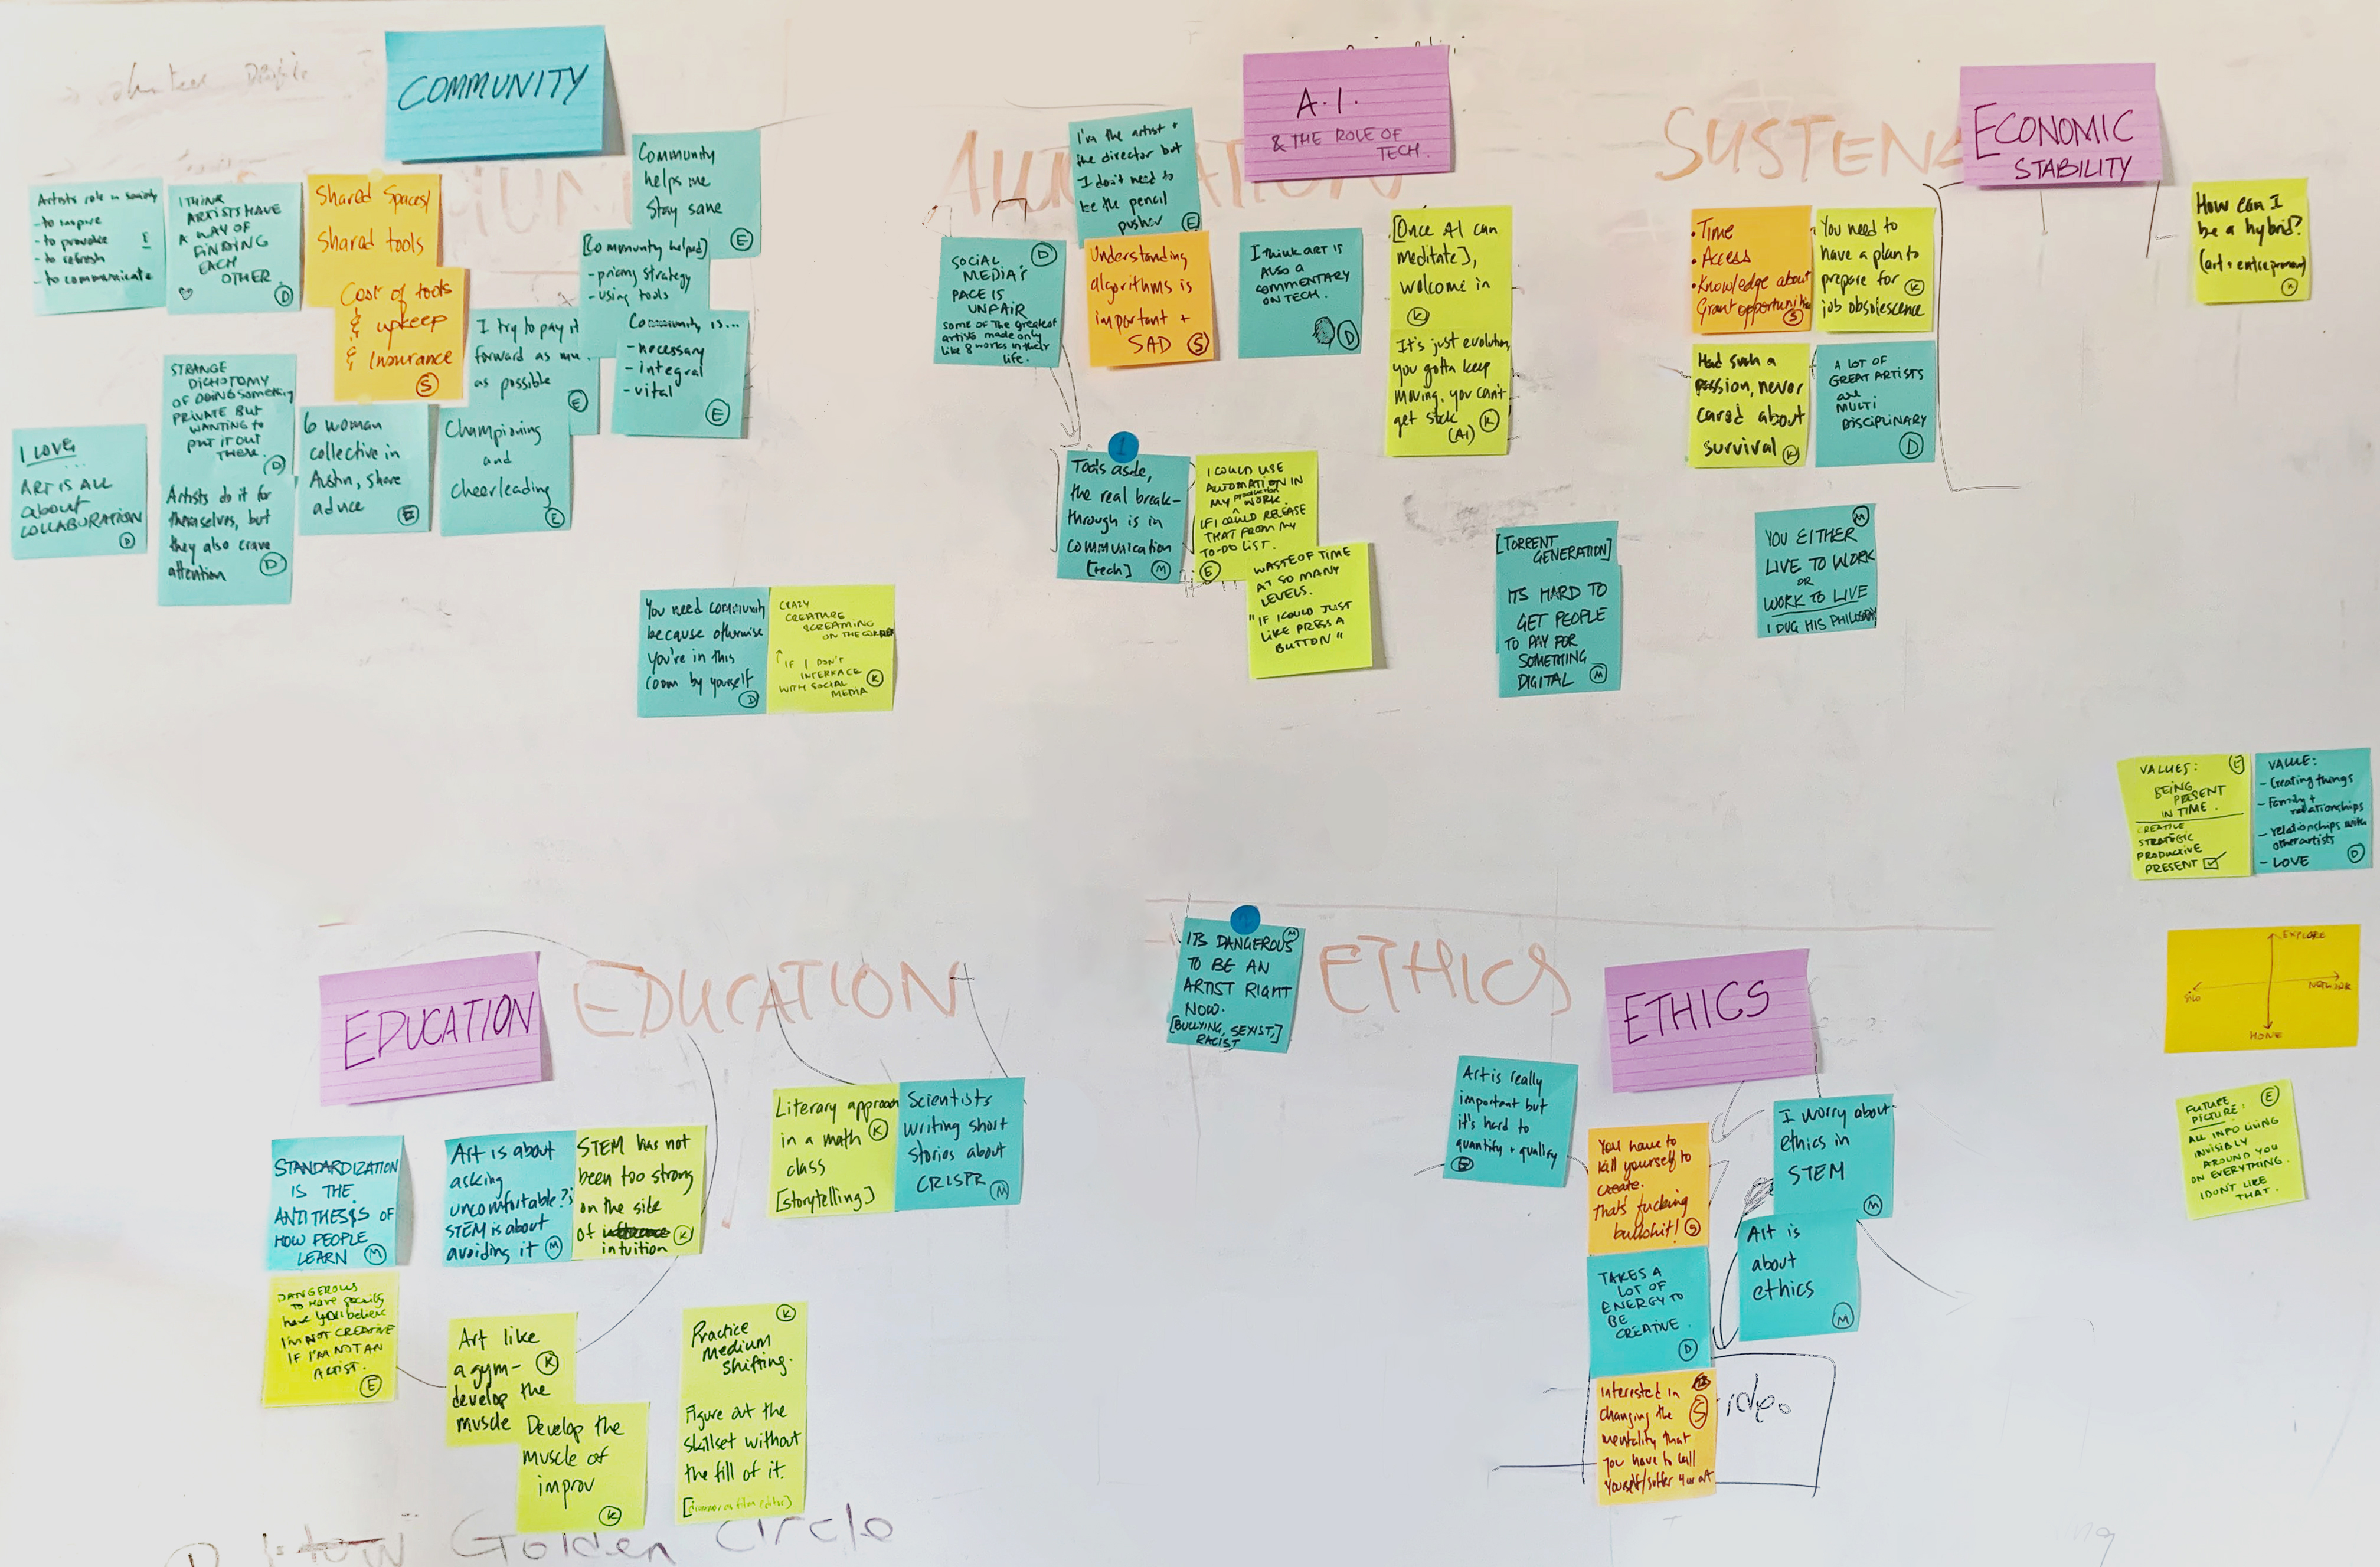 COMMUNITY
Artists role in society
- to inspire
- to provoke
- to refresh
- to communicate
I THINK
ARTISTS HAVE
A WAY OF
FINDING
EACH
OTHER.
D
Shared Spaces/
Shared tools
Cost of tools
& upkeep
& Insurance
S
Community
helps me
Stay sane
E
[Community helped]
- pricing strategy
- using tools
Community is...
- necessary
- integral
- vital
E
I try to pay it
forward as
as possible
E
STRANGE
DICHOTOMY
OF DOING SOMETHING
PRIVATE BUT
WANTING TO
PUT IT OUT
THERE.
D
I LOVE
...
ART IS ALL
about
COLLABORATION
D
Artists do it for
themselves, but
they also crave
attention
D
6 woman
collective in
Austin, share
advice
E
Championing
and
cheerleading
E
You need community
because otherwise
you're in this
room by yourself
D
CRAZY
CREATURE
SCREAMING
ON THE CORNER
IF I DON'T
INTERFACE
WITH SOCIAL
MEDIA
K
A.I.
& THE ROLE OF
TECH.
I'm the artist +
the director but
I don't need to
be the pencil
pusher
E
SOCIAL
MEDIA'S
PACE IS
UNFAIR
Some of the greatest
artists made only
like 8 works in their
life.
D
Understanding
algorithms is
important +
SAD
S
I think ART IS
ALSO A
COMMENTARY
ON TECH.
D
[Once AI can
meditate],
welcome in
K
It's just evolution,
you gotta keep
moving, you can't
get stuck
(AI)
K
1
Tools aside,
the real break-
through is in
communication
[tech]
M
I COULD USE
AUTOMATION IN
MY production WORK.
IF I COULD RELEASE
THAT FROM MY
TO-DO LIST.
E
WASTE OF TIME
AT SO MANY
LEVELS.
"IF I COULD JUST
LIKE PRESS A
BUTTON"
SUSTENA
ECONOMIC
STABILITY
• Time
• Access
• Knowledge about
Grant opportunities
S
You need to
have a plan to
prepare for
job obsolescence
K
Had such a
passion, never
cared about
survival
K
A LOT OF
GREAT ARTISTS
are
MULTI
DISCIPLINARY
D
How can I
be a hybrid?
(art + entrepreneur)
K
[TORRENT
GENERATION]
ITS HARD TO
GET PEOPLE
TO PAY FOR
SOMETHING
DIGITAL
M
M
YOU EITHER
LIVE TO WORK
OR
WORK TO LIVE
I DUG HIS PHILOSOPHY
VALUES:
E
BEING
PRESENT
IN TIME.
CREATIVE
STRATEGIC
PRODUCTIVE
PRESENT
VALUE:
- Creating things
- Family +
relationships
- relationships with
other artists
- LOVE
D
EXPLORE
SILO
NETWORK
HONE
FUTURE
PICTURE:
E
ALL INFO LIVING
INVISIBLY
AROUND YOU
ON EVERYTHING.
I DON'T LIKE
THAT.
EDUCATION
EDUCATION
STANDARDIZATION
IS THE
ANTITHESIS OF
HOW PEOPLE
LEARN
M
DANGEROUS
TO HAVE society
have you believe
I'M NOT CREATIVE
IF I'M NOT AN
ARTIST.
E
Art is about
asking
uncomfortable ?s
STEM is about
avoiding it
M
STEM has not
been too strong
on the side
of
intuition
K
Literary approach
in a math
class
[storytelling]
K
Scientists
writing short
stories about
CRISPR
M
Art like
a gym-
develop the
muscle
K
Develop the
muscle of
improv
K
K
Practice
Medium
Shifting.
Figure out the
skillset without
the fill of it.
Golden Circle
M
ITS DANGEROUS
TO BE AN
ARTIST RIGHT
NOW.
[BULLYING, SEXIST,
RACIST]
ETHICS
ETHICS
Art is really
important but
it's hard to
quantify + qualify
E
You have to
kill yourself to
create.
that's fucking
bullshit!
S
I worry about
ethics in
STEM
M
Art is
about
ethics
M
TAKES A
LOT OF
ENERGY TO
BE
CREATIVE.
D
interested in
changing the
mentality that
you have to kill
yourself/suffer 4 ur art
S